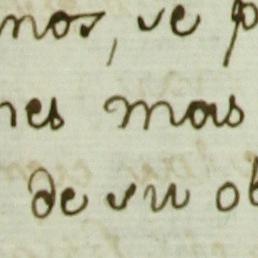 mos, se p
nes mas
de su ob